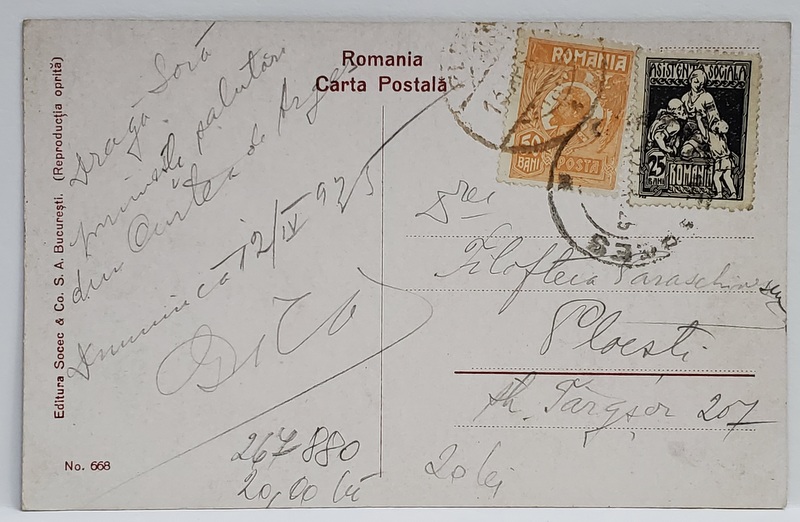 Romania
Carta Postală
Editura Socec & Co. S. A. Bucureşti. (Reproducţia oprită)
No. 668
Draga Soră
primeste salutări
din Curtea de Argeş
Duminică 12/IV 925
ROMANIA
50
BANI
POSTA
ASISTENŢA SOCIALA
25
BANI
ROMANIA
GES
Filofteia
Ploesti
Târgşor 207
267 880
20,00 lei
20 lei